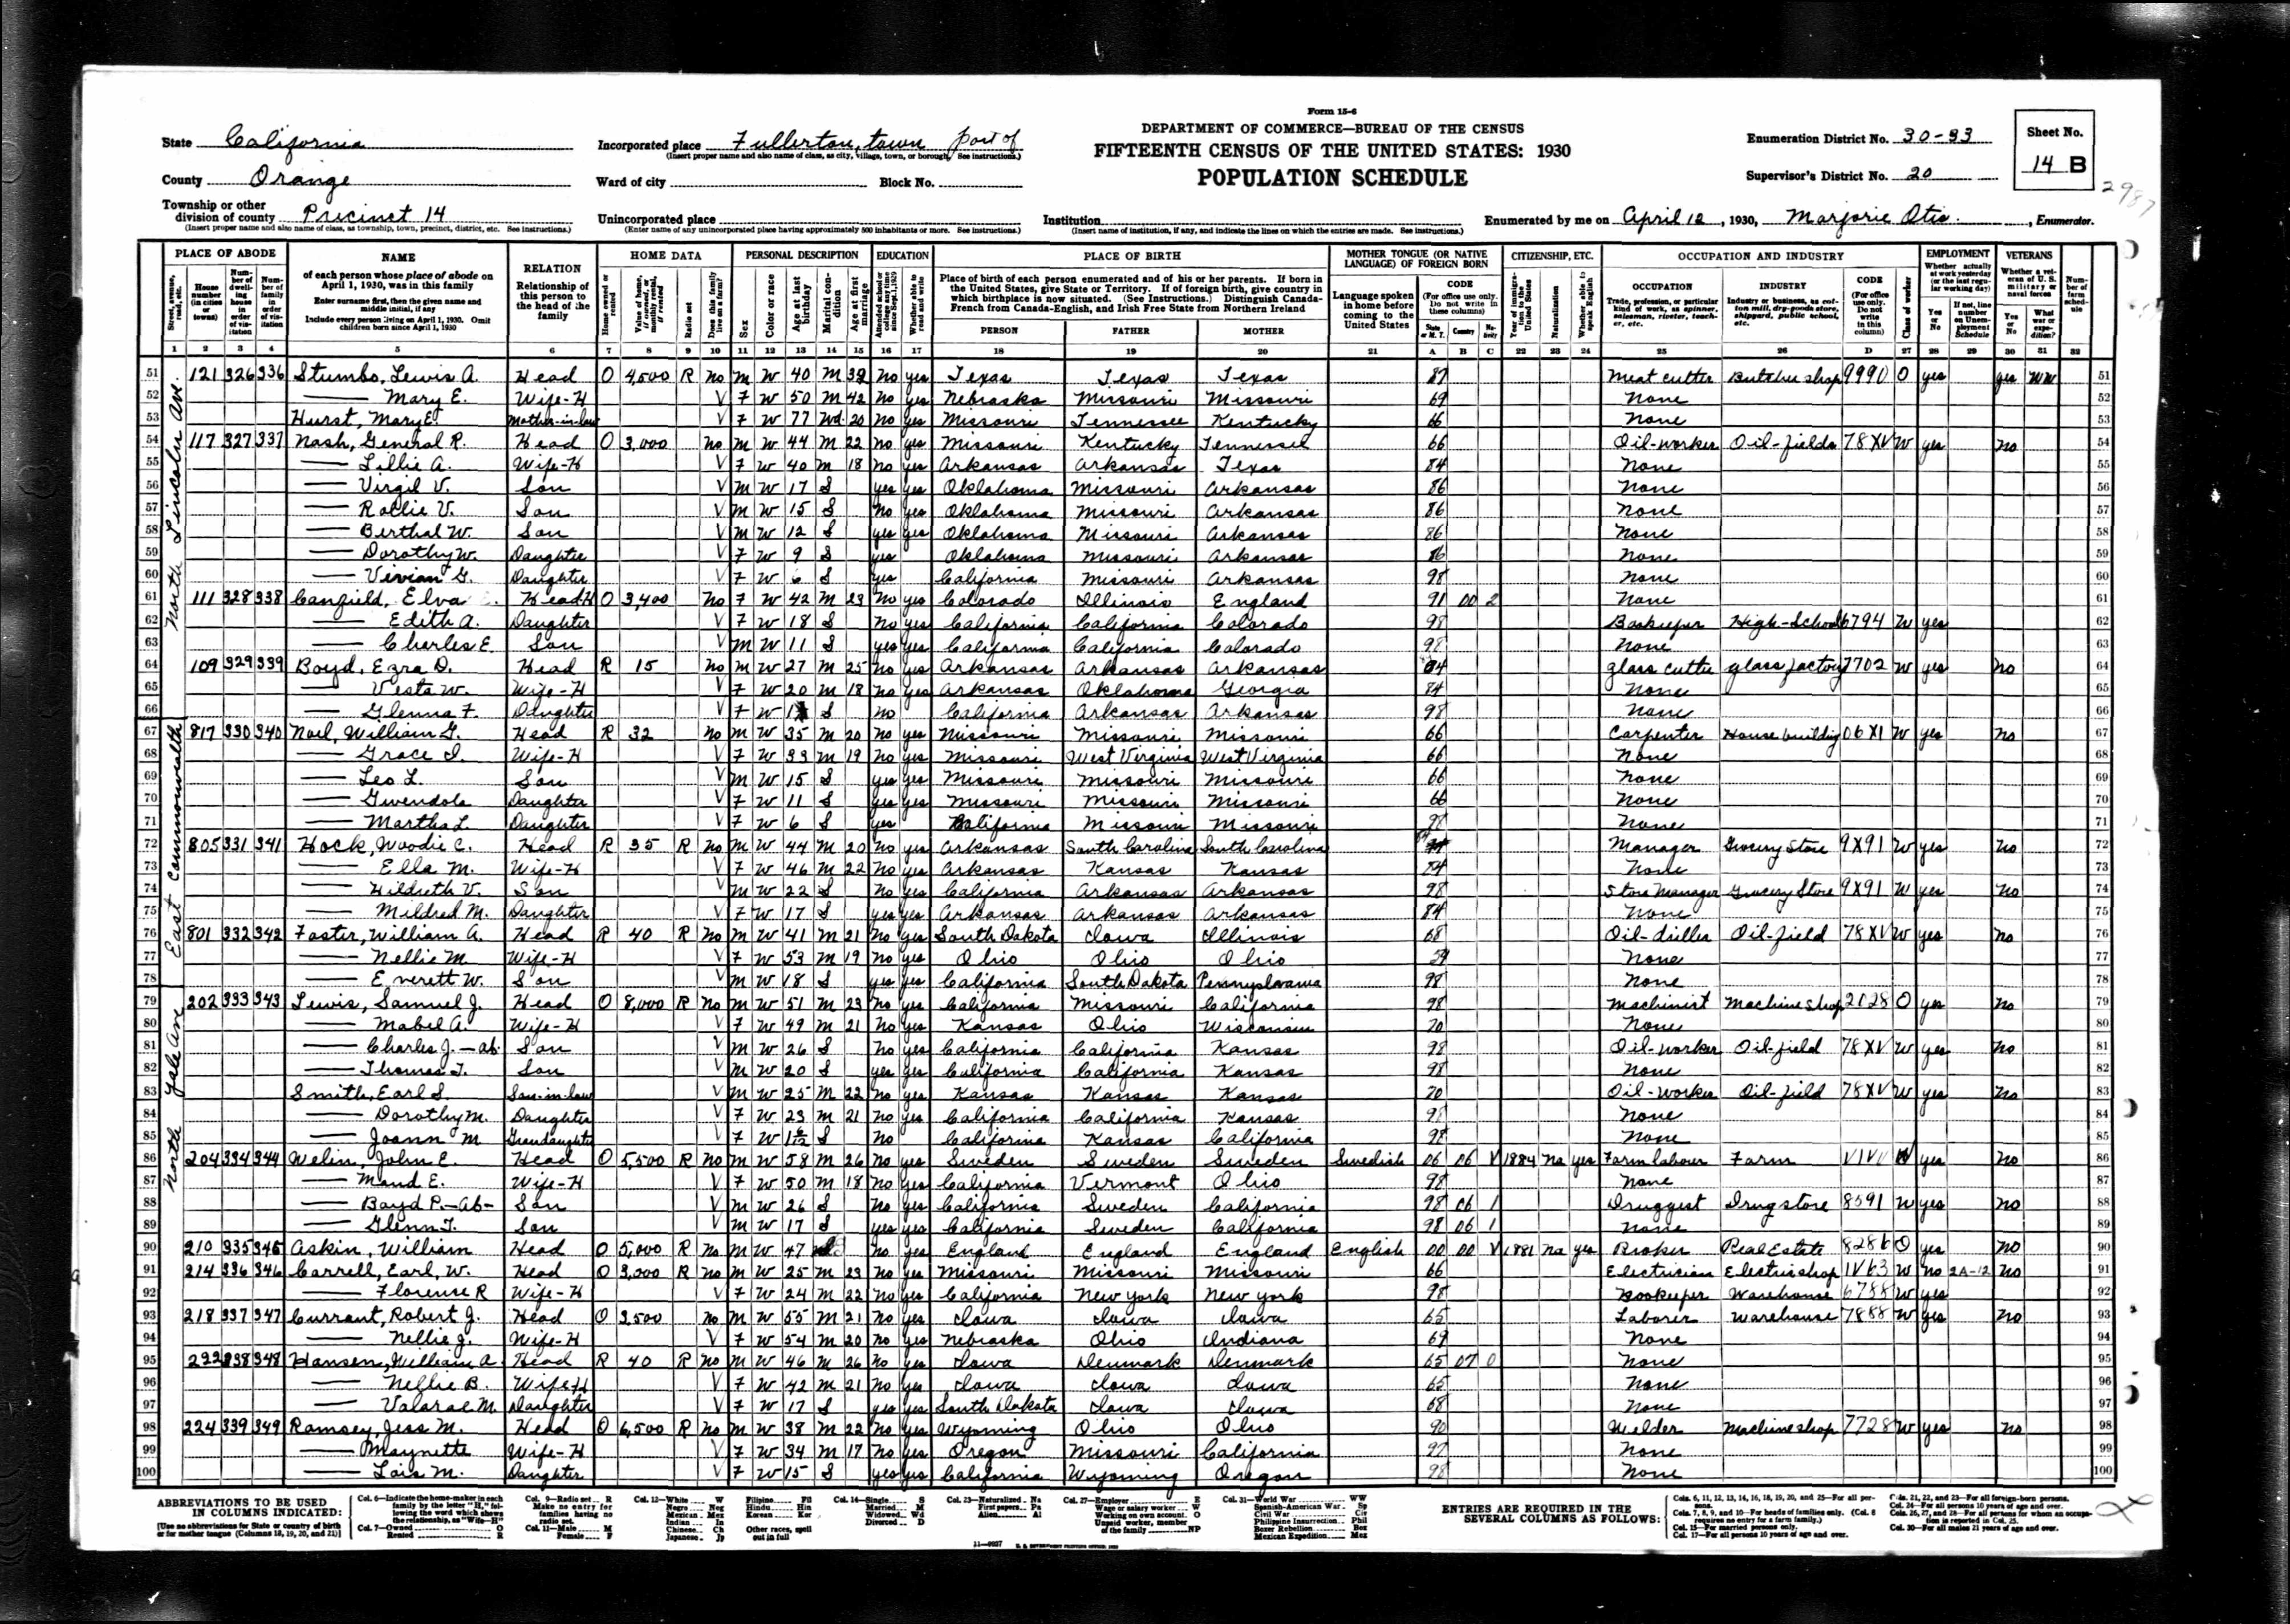 Form 15-6
DEPARTMENT OF COMMERCE—BUREAU OF THE CENSUS
FIFTEENTH CENSUS OF THE UNITED STATES: 1930
POPULATION SCHEDULE
State California
County Orange
Township or other division of county Precinct 14
(Insert proper name and also name of class, as township, town, precinct, district, etc. See instructions.)
Incorporated place Fullerton, town part of
(Insert proper name and also name of class, as city, village, town, or borough. See instructions.)
Ward of city Block No.
Unincorporated place
(Enter name of any unincorporated place having approximately 500 inhabitants or more. See instructions.)
Institution
(Insert name of institution, if any, and indicate the lines on which the entries are made. See instructions.)
Enumeration District No. 30-33
Supervisor's District No. 20
Sheet No.
14 B
2987
Enumerated by me on April 12, 1930, Marjorie Otis, Enumerator.
PLACE OF ABODE NAME RELATION HOME DATA PERSONAL DESCRIPTION EDUCATION PLACE OF BIRTH MOTHER TONGUE (OR NATIVE LANGUAGE) OF FOREIGN BORN CITIZENSHIP, ETC. OCCUPATION AND INDUSTRY EMPLOYMENT VETERANS
North Lincoln Ave.
51 121 326 336 Stumbo, Lewis A. Head O 4,500 R No M W 40 M 39 No yes Texas Texas Texas 87 Meat cutter Butcher shop 9990 O yes yes WW 51
52 — Mary E. Wife-H V F W 50 M 42 No yes Nebraska Missouri Missouri 69 None 52
53 Hurst, Mary E. Mother-in-law V F W 77 Wd 20 No yes Missouri Tennessee Kentucky 66 None 53
54 117 327 337 Nash, General R. Head O 3,000 No M W 44 M 22 no yes Missouri Kentucky Tennessee 66 Oil-worker Oil-fields 78XV W yes no 54
55 — Lillie A. Wife-H V F W 40 M 18 no yes Arkansas Arkansas Texas 84 None 55
56 — Virgil V. Son V M W 17 S yes yes Oklahoma Missouri Arkansas 86 None 56
57 — Rollie V. Son V M W 15 S No yes Oklahoma Missouri Arkansas 86 None 57
58 — Berthal W. Son V M W 12 S yes yes Oklahoma Missouri Arkansas 86 None 58
59 — Dorothy W. Daughter V F W 9 S yes Oklahoma Missouri Arkansas 86 None 59
60 — Vivian G. Daughter V F W 6 S yes California Missouri Arkansas 98 None 60
61 111 328 338 Canfield, Elva Head H O 3,400 No F W 42 M 23 No yes Colorado Illinois England 91 00 2 None 61
62 — Edith A. Daughter V F W 18 S No yes California California Colorado 98 Bookeeper High-School 6794 W yes 62
63 — Charles E. Son V M W 11 S yes yes California California Colorado 98 None 63
64 109 329 339 Boyd, Ezra D. Head R 15 No M W 27 M 25 No yes Arkansas Arkansas Arkansas 84 glass cutter glass factory 7702 W yes no 64
65 — Vesta W. Wife-H V F W 20 M 18 no yes Arkansas Oklahoma Georgia 84 None 65
66 — Glenna F. Daughter V F W S no California Arkansas Arkansas 98 None 66
East Commonwealth
67 817 330 340 Noel, William G. Head R 32 No M W 35 M 20 No yes Missouri Missouri Missouri 66 Carpenter House building 06X1 W yes no 67
68 — Grace I. Wife-H V F W 33 M 19 No yes Missouri West Virginia West Virginia 66 None 68
69 — Leo L. Son V M W 15 S yes yes Missouri Missouri Missouri 66 None 69
70 — Gwendola Daughter V F W 11 S yes yes Missouri Missouri Missouri 66 None 70
71 — Martha L. Daughter V F W 6 S yes California Missouri Missouri 98 None 71
72 805 331 341 Hock, Woodie C. Head R 35 R No M W 44 M 20 No yes Arkansas South Carolina South Carolina Manager Grocery Store 9X91 W yes No 72
73 — Ella M. Wife-H V F W 46 M 22 No yes Arkansas Kansas Kansas 84 None 73
74 — Hildreth V. Son V M W 22 S No yes California Arkansas Arkansas 98 Store Manager Grocery Store 9X91 W yes No 74
75 — Mildred M. Daughter V F W 17 S yes yes Arkansas Arkansas Arkansas 84 None 75
76 801 332 342 Foster, William A. Head R 40 R No M W 41 M 21 No yes South Dakota Iowa Illinois 68 Oil-driller Oil-field 78XV W yes no 76
77 — Nellie M Wife-H V F W 53 M 19 no yes Ohio Ohio Ohio None 77
78 — Everett W. Son V M W 18 S yes yes California South Dakota Pennsylvania 98 None 78
North Yale Ave
79 202 333 343 Lewis, Samuel J. Head O 8,000 R No M W 51 M 23 No yes California Missouri California 98 Machinist Machine shop 2128 O yes No 79
80 — Mabel A. Wife-H V F W 49 M 21 No yes Kansas Ohio Wisconsin 70 None 80
81 — Charles J. —ab. Son V M W 26 S No yes California California Kansas 98 Oil-worker Oil field 78XV W yes No 81
82 — Thomas T. Son V M W 20 S yes yes California California Kansas 98 None 82
83 Smith, Earl S. Son-in-law V M W 25 M 22 no yes Kansas Kansas Kansas 70 Oil-worker Oil-field 78XV W yes No 83
84 — Dorothy M. Daughter V F W 23 M 21 No yes California California Kansas 98 None 84
85 — Joann M Grandaughter V F W 1 6/12 S No California Kansas California 98 None 85
86 204 334 344 Welin, John E. Head O 5,500 R No M W 58 M 26 No yes Sweden Sweden Sweden Swedish 06 06 V 1884 na yes Farm labour Farm VIVV W yes No 86
87 — Maud E. Wife-H V F W 50 M 18 No yes California Vermont Ohio 98 None 87
88 — Boyd P.-ab- Son V M W 26 S No yes California Sweden California 98 06 1 Druggest Drug store 8591 W yes no 88
89 — Glenn T. Son V M W 17 S yes yes California Sweden California 98 06 1 None 89
90 210 335 345 Askin, William Head O 5,000 R No M W 47 no yes England England England English 00 00 V 1881 na yes Broker Real Estate 8286 O yes no 90
91 214 336 346 Carrell, Earl, W. Head O 3,000 R no M W 25 M 23 No yes Missouri Missouri Missouri 66 Electrician Electric shop 1V63 W no 2A-12 No 91
92 — Florense R Wife-H V F W 24 M 22 No yes California New York New York 98 Bookeeper Warehouse 6788 W yes 92
93 218 337 347 Currant, Robert J. Head O 3,500 no M W 55 M 21 No yes Iowa Iowa Iowa 65 Laborer Warehouse 7888 W yes No 93
94 — Nellie J. Wife-H V F W 54 M 20 No yes Nebraska Ohio Indiana 69 None 94
95 222 338 348 Hansen, William A Head R 40 R no M W 46 M 26 no yes Iowa Denmark Denmark 65 07 0 None 95
96 — Nellie B. Wife H V F W 42 M 21 no yes Iowa Iowa Iowa 65 None 96
97 — Valarae M. Daughter V F W 17 S yes yes South Dakota Iowa Iowa 68 None 97
98 224 339 349 Ramsey, Jess M. Head O 6,500 R no M W 38 M 22 No yes Wyoming Ohio Ohio 90 Welder Machine shop 7728 W yes no 98
99 — Maynette Wife-H V F W 34 M 17 No yes Oregon Missouri California 97 None 99
100 — Lois M. Daughter V F W 15 S yes yes California Wyoming Oregon 98 None 100
ABBREVIATIONS TO BE USED IN COLUMNS INDICATED:
[Use no abbreviations for State or country of birth or for mother tongue (Columns 18, 19, 20, and 21)]
ENTRIES ARE REQUIRED IN THE SEVERAL COLUMNS AS FOLLOWS: